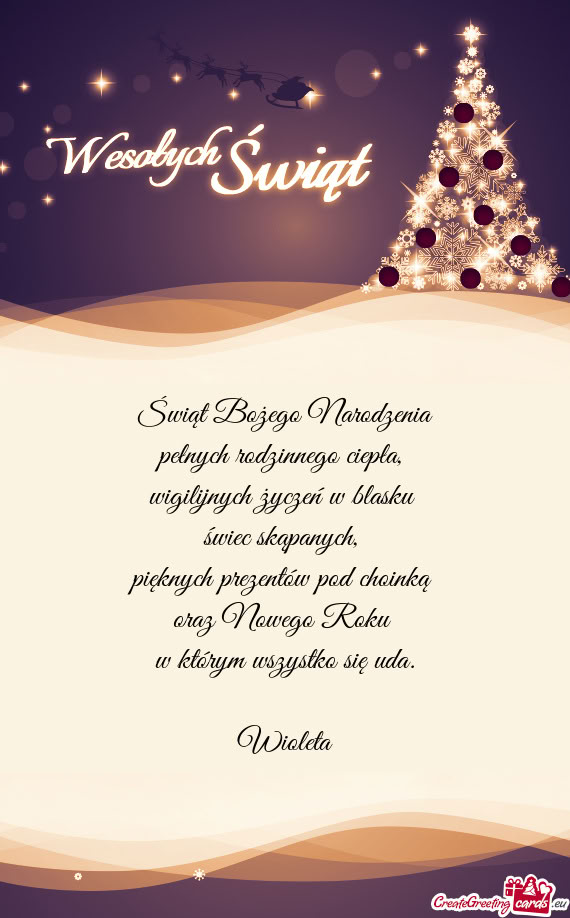 Wesołych Świąt
Świąt Bożego Narodzenia
pełnych rodzinnego ciepła,
wigilijnych życzeń w blasku
świec skąpanych,
pięknych prezentów pod choinką
oraz Nowego Roku
w którym wszystko się uda.
Wioleta
CreateGreetingcards.eu